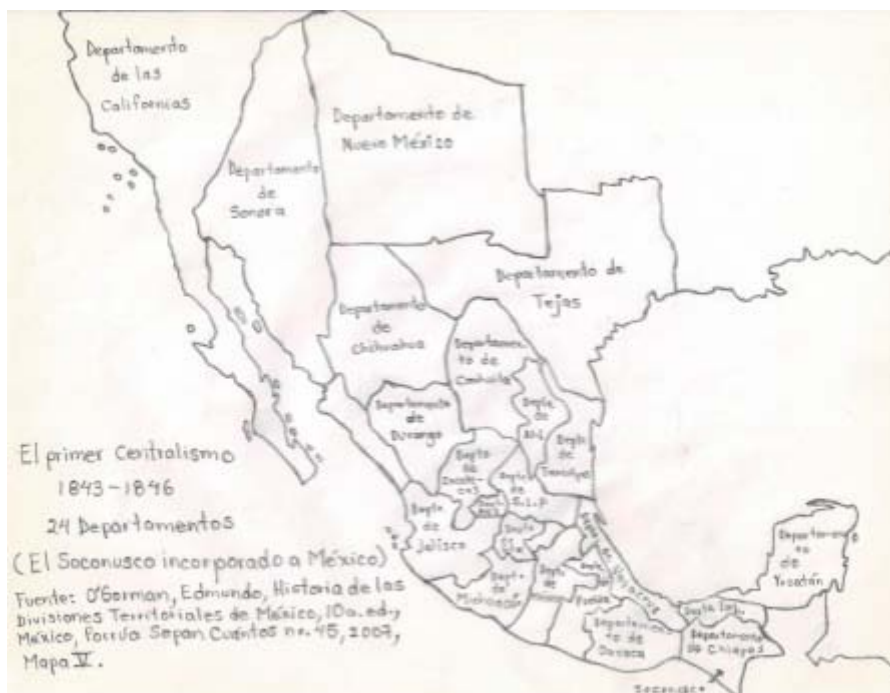 Departamento
de las
Californias
Departamento de
Nuevo México
Departamento
de
Sonora
Departamento de
Tejas
Departamento
de
Chihuahua
Departamen-
to de
Coahuila
Departamento
de
Durango
Depto.
de
N.L.
Depto
de
Tamaulipas
Depto
de
Depto
de
S.L.P
Depto
de
Jalisco
Depto
de
Michoacán
Depto
de
Puebla
Veracruz
Departamen-
to de
Oaxaca
Departamen-
to de
Yucatán
Departamento
de Chiapas
Soconusco
El primer Centralismo
1843-1846
24 Departamentos
(El Soconusco incorporado a México)
Fuente: O'Gorman, Edmundo, Historia de las
Divisiones Territoriales de México, 10a. ed.,
México, Porrúa Sepan Cuántos no. 45, 2007,
Mapa V.